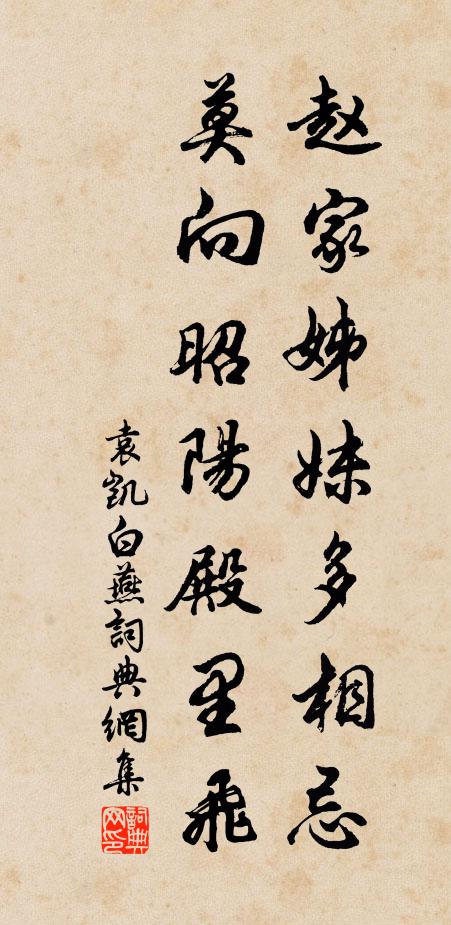 赵家姊妹多相忌
莫向昭陽殿里飛
袁凯白燕詞典網集
詞典网印